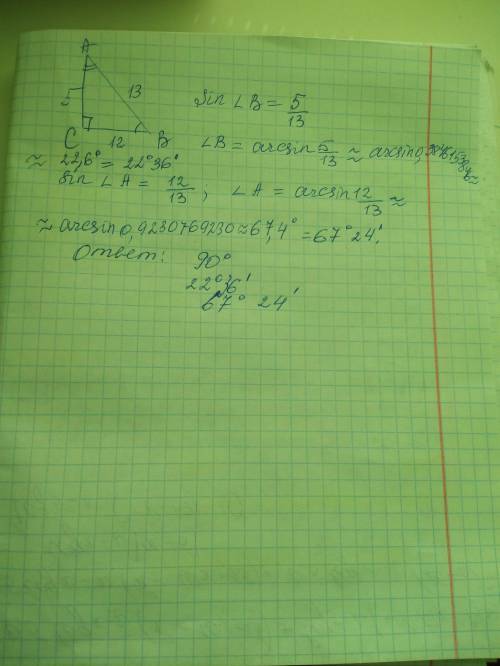 A
5
13
C
12
B
Sin ∠B = 5/13
∠B = arcsin 5/13 ≈ arcsin 0,3846153
≈ 22,6° = 22°36'
Sin ∠A = 12/13 ; ∠A = arcsin 12/13 ≈
≈ arcsin 0,9230769230 ≈ 67,4° = 67°24'.
Ответ: 90°
22°36'
67° 24'